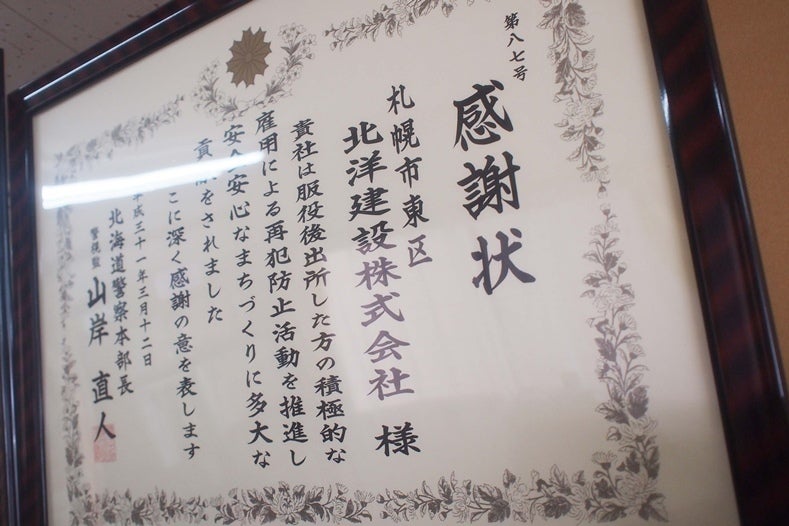 第八七号
感謝状
札幌市東区
北洋建設株式会社 様
貴社は服役後出所した方の積極的な
雇用による再犯防止活動を推進し
安全安心なまちづくりに多大な
貢献をされました
ここに深く感謝の意を表します
平成三十一年三月十二日
北海道警察本部長
警視監 山岸直人